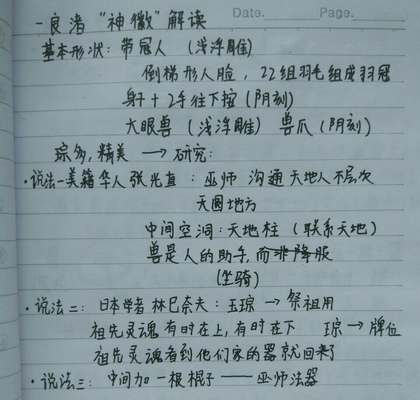 Date. Page.
一良渚“神徽”解读
基本形状：带冠人（浅浮雕）
倒梯形人脸，22组羽毛组成羽冠
身子+2手往下按（阴刻）
大眼兽（浅浮雕）兽爪（阴刻）
琮多，精美 → 研究：
·说法一美籍华人张光直：巫师 沟通天地人不层次
天圆地方
中间空洞：天地柱（联系天地）
兽是人的助手，而非降服
（坐骑）
·说法二：日本学者林巳奈夫：玉琮→祭祖用
祖先灵魂有时在上，有时在下 琮→牌位
祖先灵魂看到他们家的器就回来了
·说法三：中间加一根棍子——巫师法器